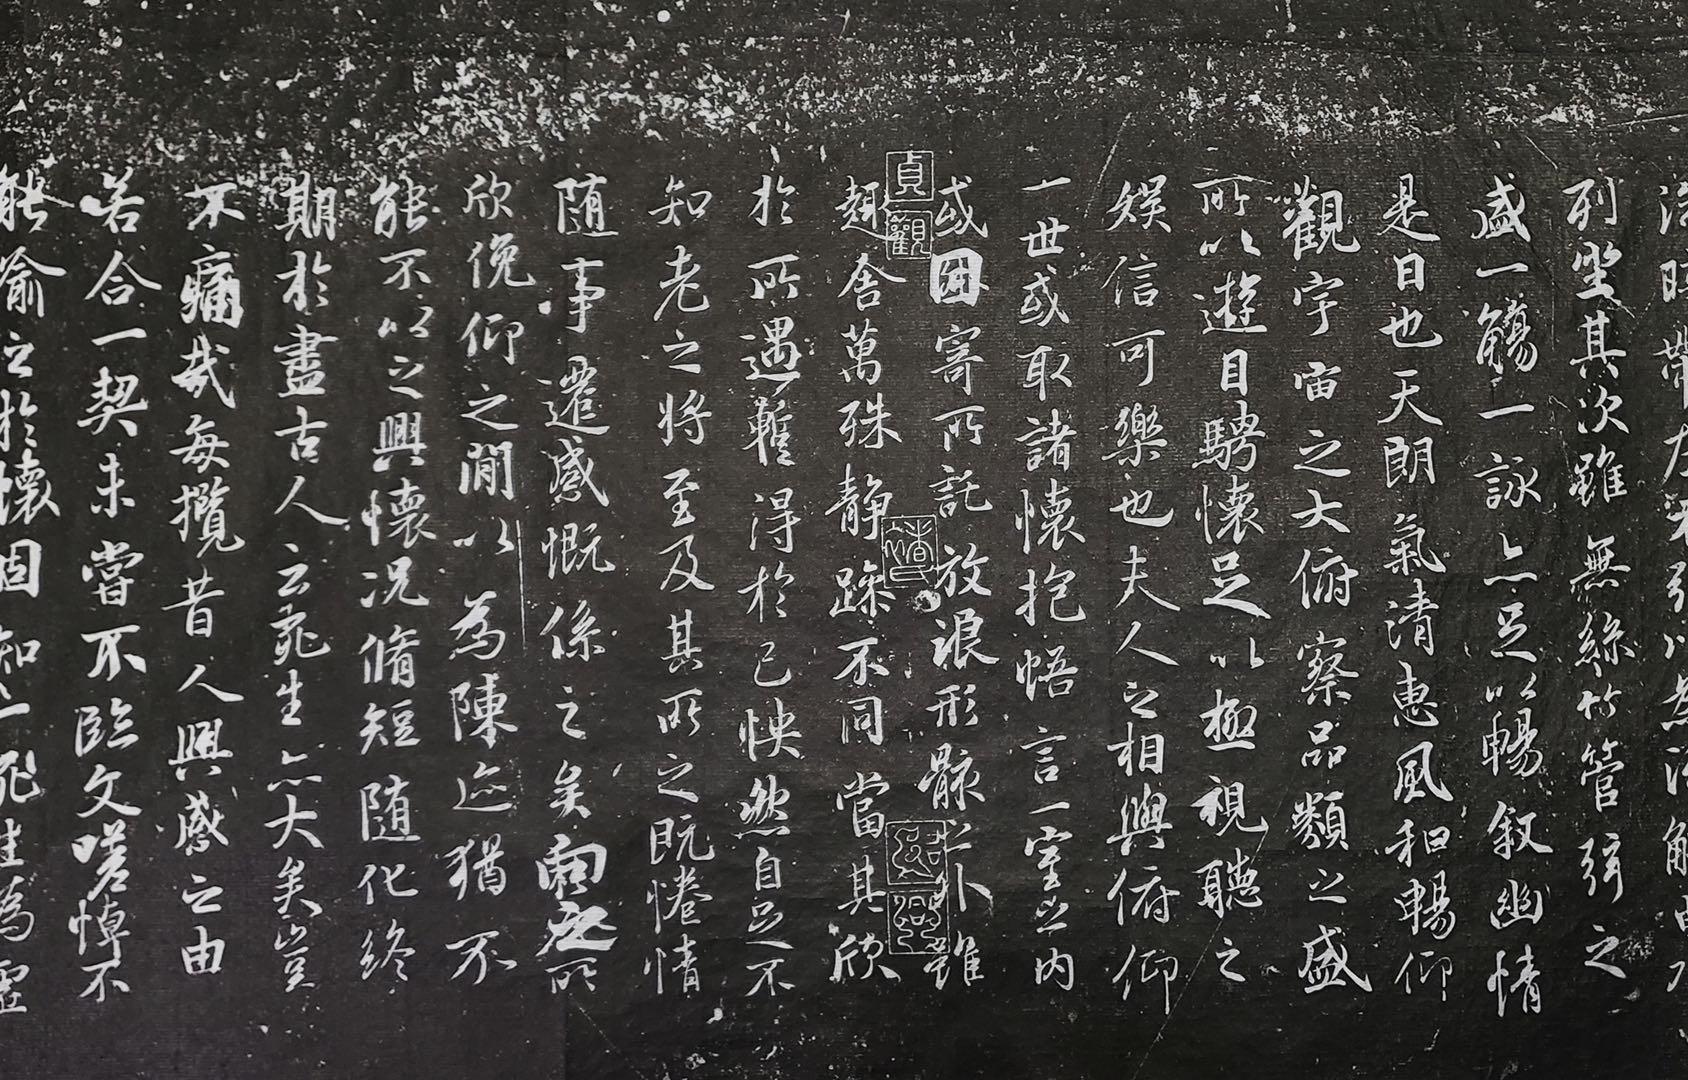 湍暎帶左右引以為流觴曲水
列坐其次雖無絲竹管弦之
盛一觴一詠亦足以暢叙幽情
是日也天朗氣清惠風和暢仰
觀宇宙之大俯察品類之盛
所以遊目騁懷足以極視聽之
娛信可樂也夫人之相與俯仰
一世或取諸懷抱悟言一室之內
或因寄所託放浪形骸之外雖
貞觀
紹興
趣舍萬殊静躁不同當其欣
於所遇蹔得於己怏然自足不
知老之將至及其所之既惓情
随事遷感慨係之矣向之所
欣俛仰之閒以為陳迹猶不
能不以之興懷况脩短随化終
期於盡古人云死生亦大矣豈
不痛哉每攬昔人興感之由
若合一契未嘗不臨文嗟悼不
能喻之於懷固知一死生為虛